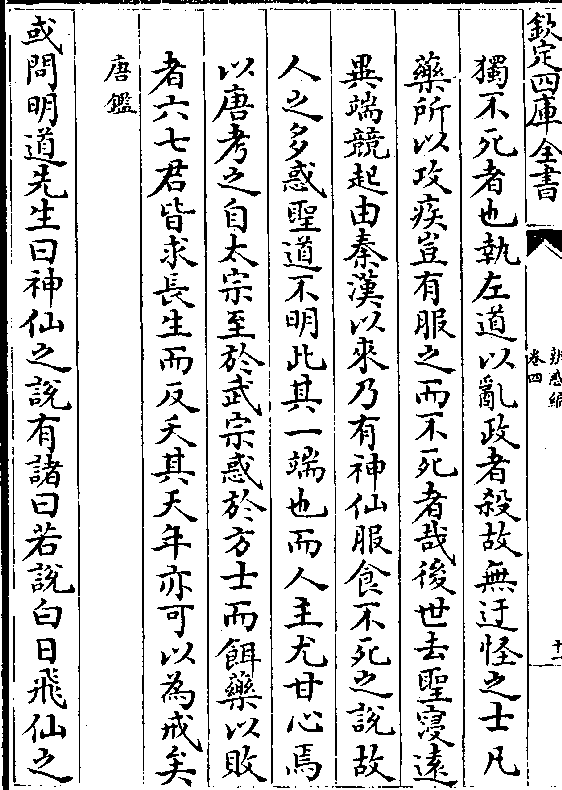 欽定四庫全書
辨惑編
卷四
十一
獨不死者也執左道以亂政者殺故無迂怪之士凡
藥所以攻疾豈有服之而不死者哉後世去聖寖遠
異端競起由秦漢以來乃有神仙服食不死之說故
人之多惑聖道不明此其一端也而人主尤甘心焉
以唐考之自太宗至於武宗惑於方士而餌藥以敗
者六七君皆求長生而反夭其天年亦可以為戒矣
唐鑑
或問明道先生曰神仙之說有諸曰若說白日飛仙之